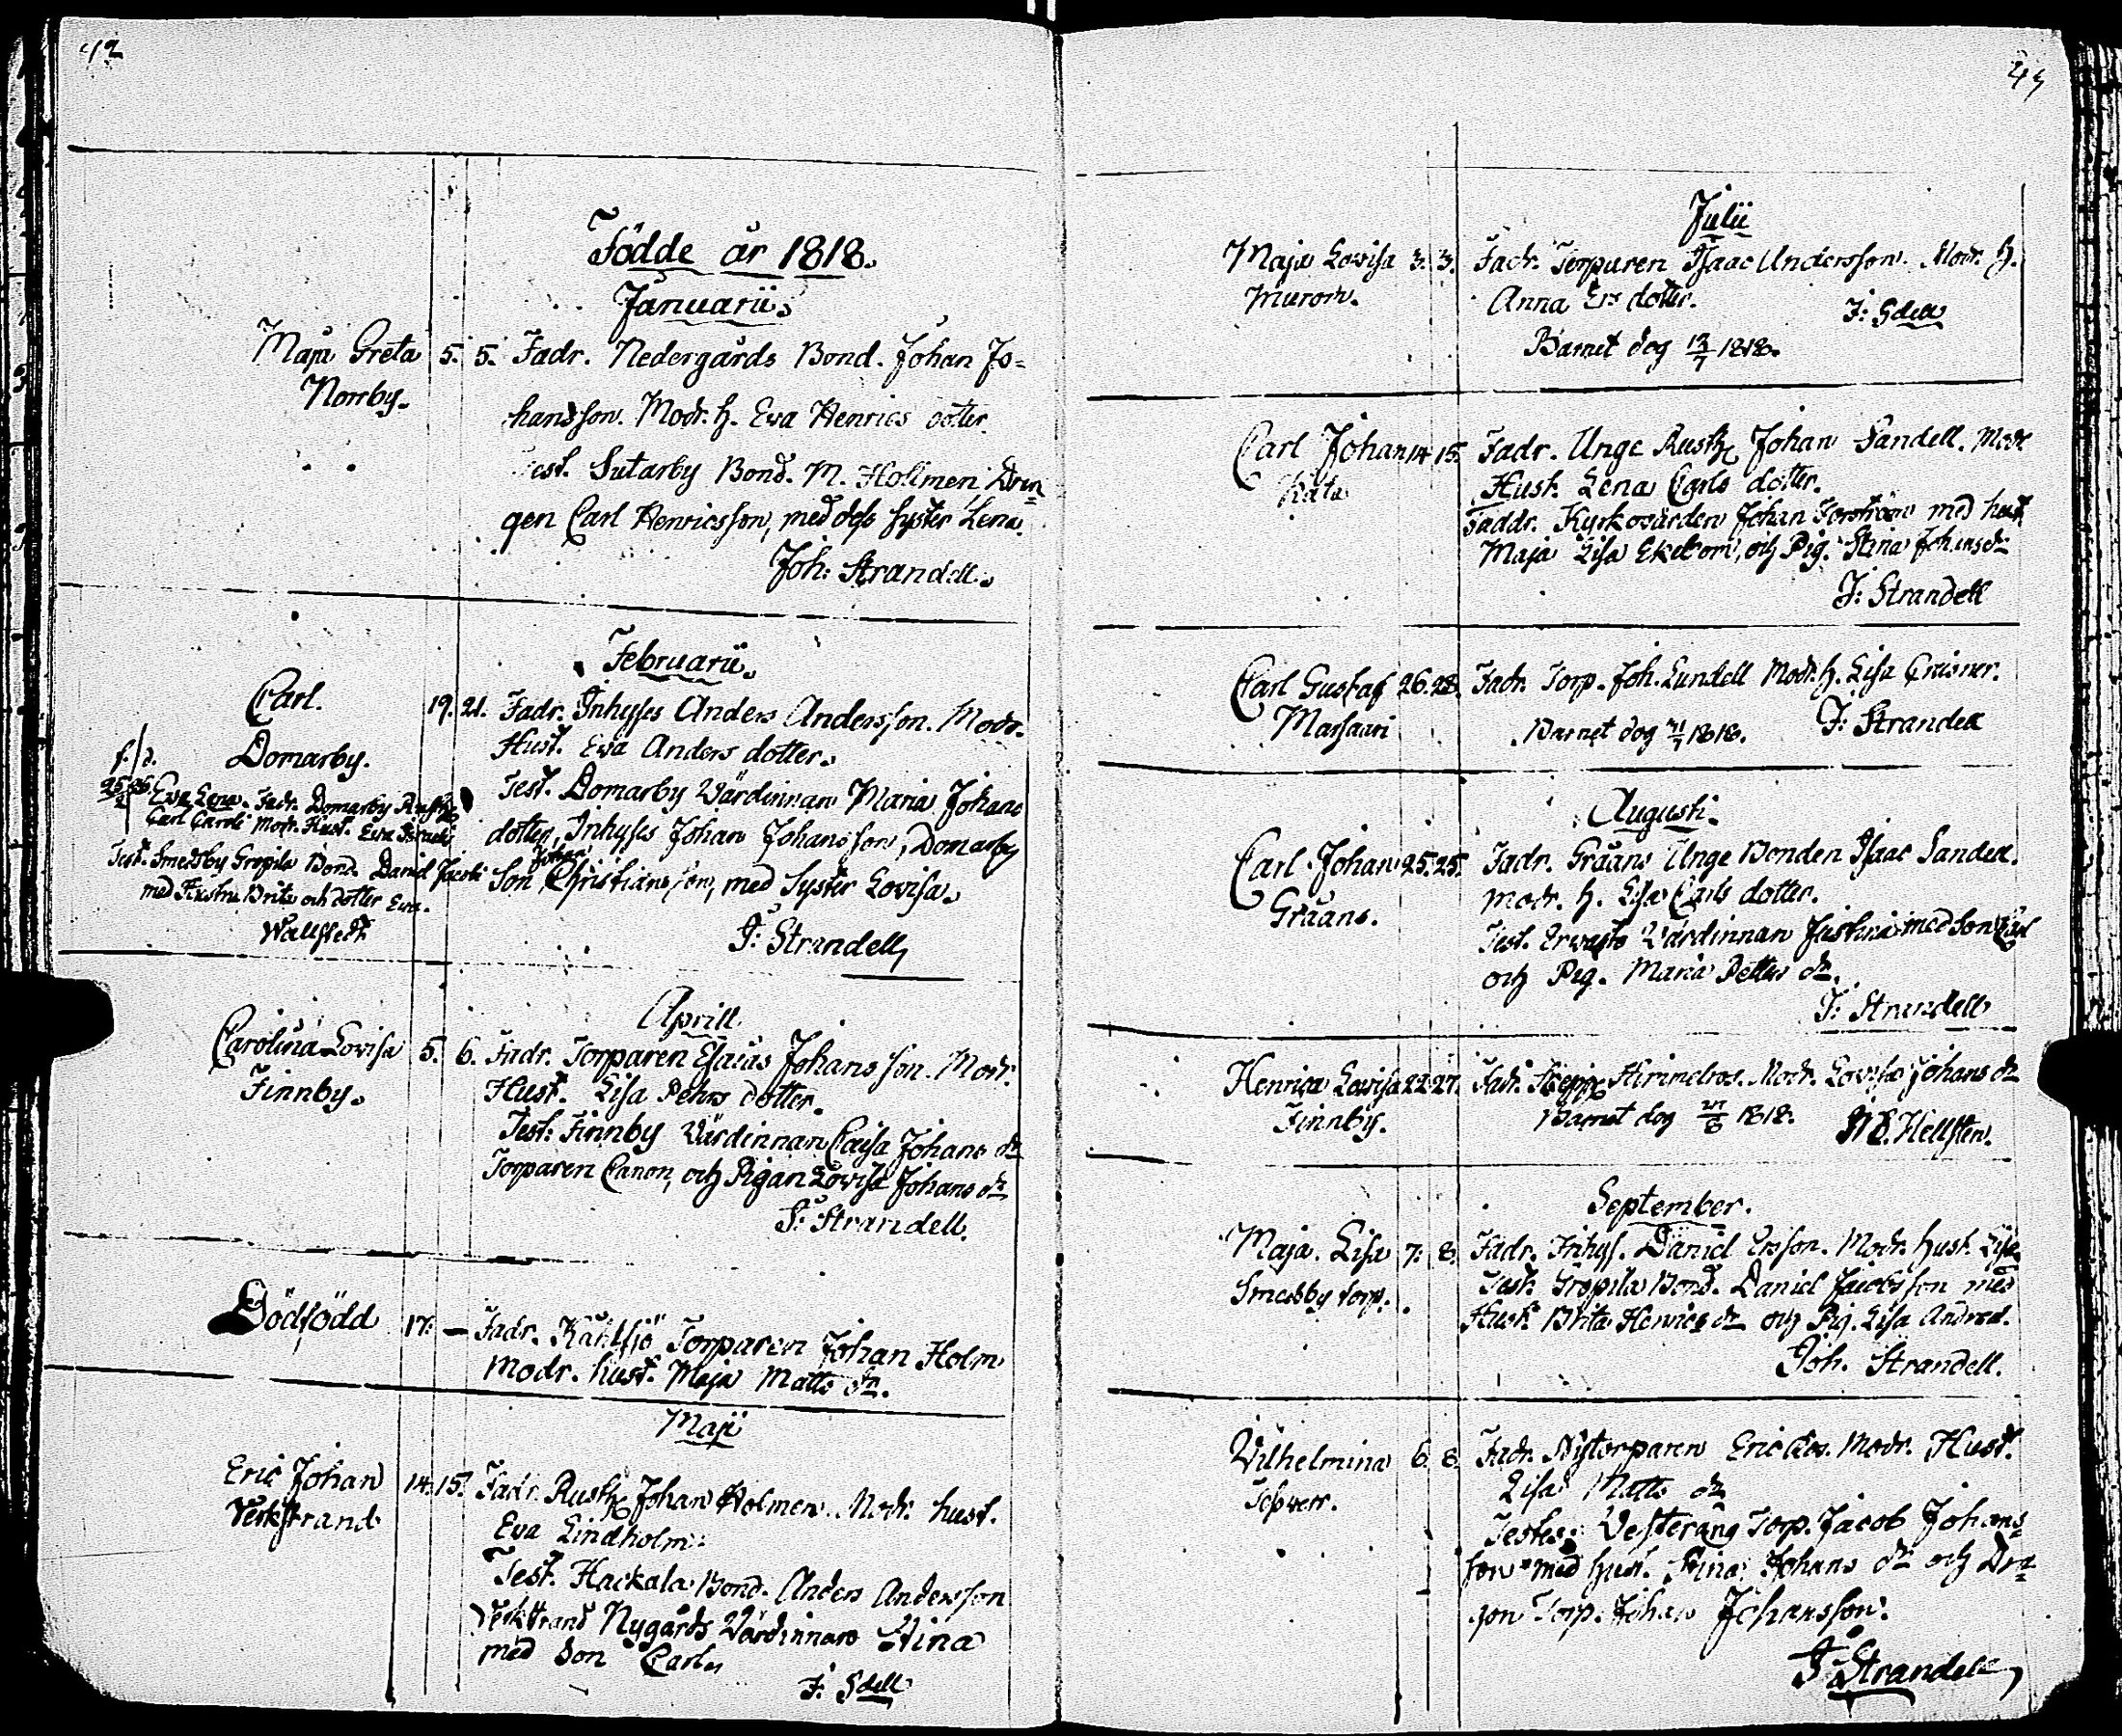 42
Födde år 1818.
Januarii.
Maja Greta 5. 5. Fadr. Nedergårds Bond. Johan Jo=
Norrby. hansson. Modr. h. Eva Henrics dotter.
Test. Sutarby Bond. M. Hollmen Dren=
gen Carl Henricsson, med dess syster Lena.
Joh: Strandell.
Februarii.
Carl. 19. 21. Fadr. Inhyses Anders Andersson. Modr.
Domarby. Hust. Eva Anders dotter.
Test. Domarby Värdinnan Maria Johans
dotter, Inhyses Johan Johansson, Domarby
Son Johan Christiansson, med syster Lovisa.
J: Strandell
f. d.
25/2 26. Eva Lena. Fadr. Domarby Rusth.
Carl Caroli Modr. Hust. Eva
Test. Smedsby Gropila Bond. David Jacobs
med Hustru Brita och dotter Eva.
Wallstedt
Aprill
Carolina Lovisa 5. 6. Fadr. Torparen Esaias Johansson. Modr.
Finnby. Hust. Lisa Pehrs dotter.
Test: Finnby Värdinnan Caisa Johans dr
Torparen Canon, och Pigan Lovisa Johans dr
J: Strandell.
Dödfödd 17. — Fadr. Torparen Johan Holm
Modr. hust. Maja Matts dr.
Maji
Eric Johan 14. 15. Fadr. Rusth. Johan Holmen. Modr. hust.
Verkstrand Eva Lindholm.
Test. Hackala Bond. Anders Andersson
Verkstrand Nygårds Värdinnan Stina
med Son Carl.
J: Sdell
43
Julii
Maja Lovisa 3. 3. Fadr. Torparen Isaac Andersson. Modr. h.
Murom. Anna Ers dotter. J: Sdell
Barnet dog 13/7 1818.
Carl Johan 14 15. Fadr. Unge Rusth. Johan Sandell. Modr
Hust. Lena Carls dotter.
Faddr. Kyrkovärden Johan Forström med hust
Maja Lisa Ekebom, och Pig. Stina Johans dr
J: Strandell
Carl Gustaf 26. 28. Fadr. Torp. Joh. Lundell Modr. h. Lisa
Massaari Barnet dog 31/7 1818. J: Strandell
Augusti.
Carl Johan 25. 25. Fadr. Gråans Unge Bonden Isaac Sandell.
Gråans. Modr. h. Lisa Carls dotter.
Test. Ervasts Värdinnan Justina med Son Carl
och Pig. Maria Petters dr.
J: Strandell
Henrica Lovisa 22 27. Fadr. Himmelros. Modr. Lovisa Johans dr
Finnby. Barnet dog 1818. Hellsten.
September.
Maja Lisa 7. 8. Fadr. Inhys. Daniel Ersson. Modr. hust. Lisa
Smedsby torp. Test. Gropila Bond. Daniel Jacobsson med
Hust. Brita Henrics dr och Pig. Lisa Andersd.
Joh. Strandell.
Vilhelmina 6. 8. Fadr. Nytorparen Eric Modr. Hust.
Lisa Matts dr
Testes: Vesterång Torp. Jacob Johans=
son med hust. Stina Johans dr och Dra=
gon Torp. Johan Johansson.
J: Strandell